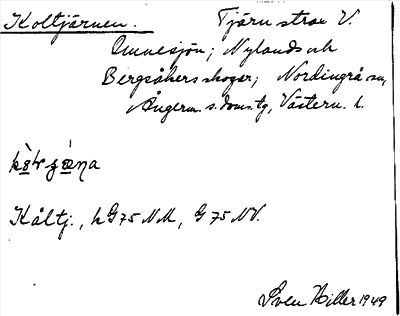 Koltjärnen. Tjärn strax V.
Omnesjön; Nylands och
Bergsåkers skogar; Nordingrå sn,
Ångerm. s. doms.tg, Västern. l.
Kåltj., h G 75 NM, G 75 NV.
Sven Hiller 1949